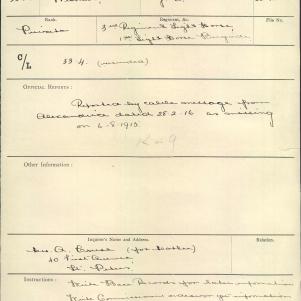 Rank.
Regiment, &c.
File No.
Private
3rd Regiment Light Horse,
1st Light Horse Brigade
C/L
334. (wounded)
OFFICIAL REPORTS:
Reported by cable message from
Alexandria dated 28-2-16 as missing
on 6-8-1915.
K in 9
Other Information:
Inquirer's Name and Address.
Relation.
(for Mother)
40 First Avenue
St. Peters
Instructions:
Write Base Records for later information
Write Commissioner